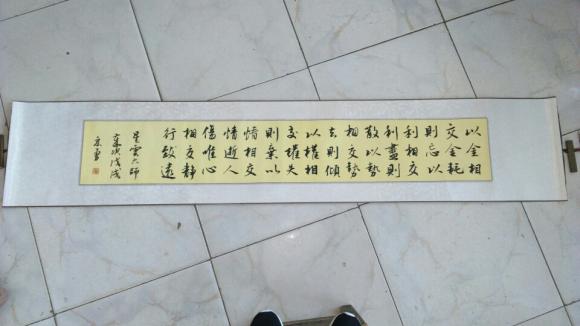 以金相
交金耗
則忘以
利相交
利盡則
散以勢
相交勢
去則傾
以權相
交權失
則棄以
情相交
情逝人
傷唯心
相交靜
行致遠
星雲大師
次戊戌